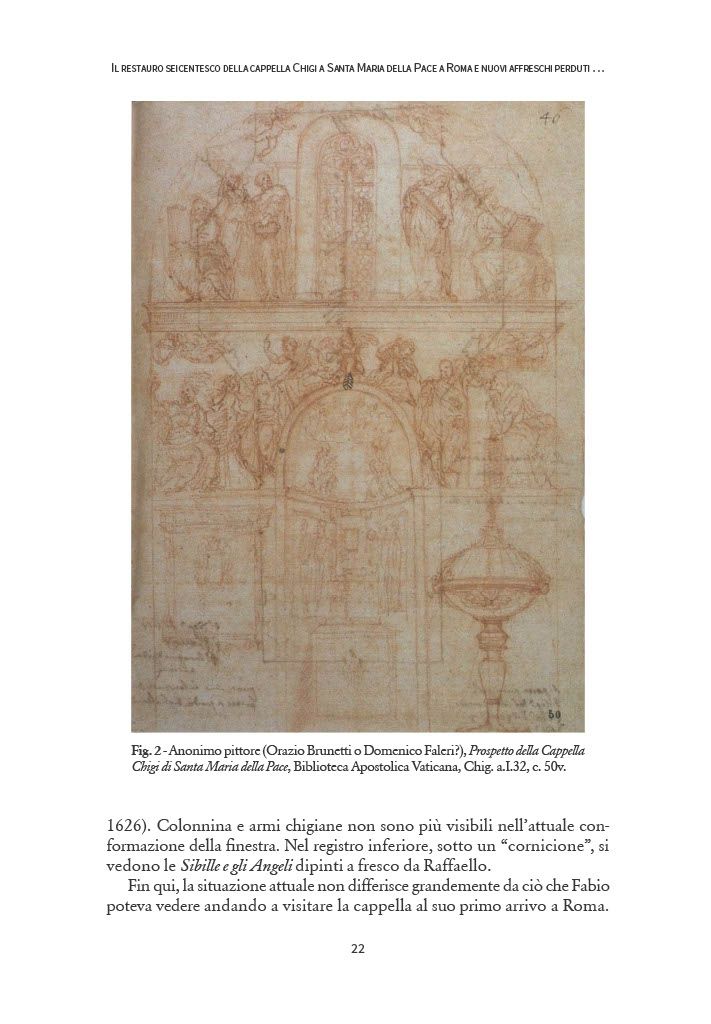 Il restauro seicentesco della cappella Chigi a Santa Maria della Pace a Roma e nuovi affreschi perduti …
46
50
Fig. 2 - Anonimo pittore (Orazio Brunetti o Domenico Faleri?), Prospetto della Cappella
Chigi di Santa Maria della Pace, Biblioteca Apostolica Vaticana, Chig. a.I.32, c. 50v.
1626). Colonnina e armi chigiane non sono più visibili nell’attuale con-
formazione della finestra. Nel registro inferiore, sotto un “cornicione”, si
vedono le Sibille e gli Angeli dipinti a fresco da Raffaello.
Fin qui, la situazione attuale non differisce grandemente da ciò che Fabio
poteva vedere andando a visitare la cappella al suo primo arrivo a Roma.
22